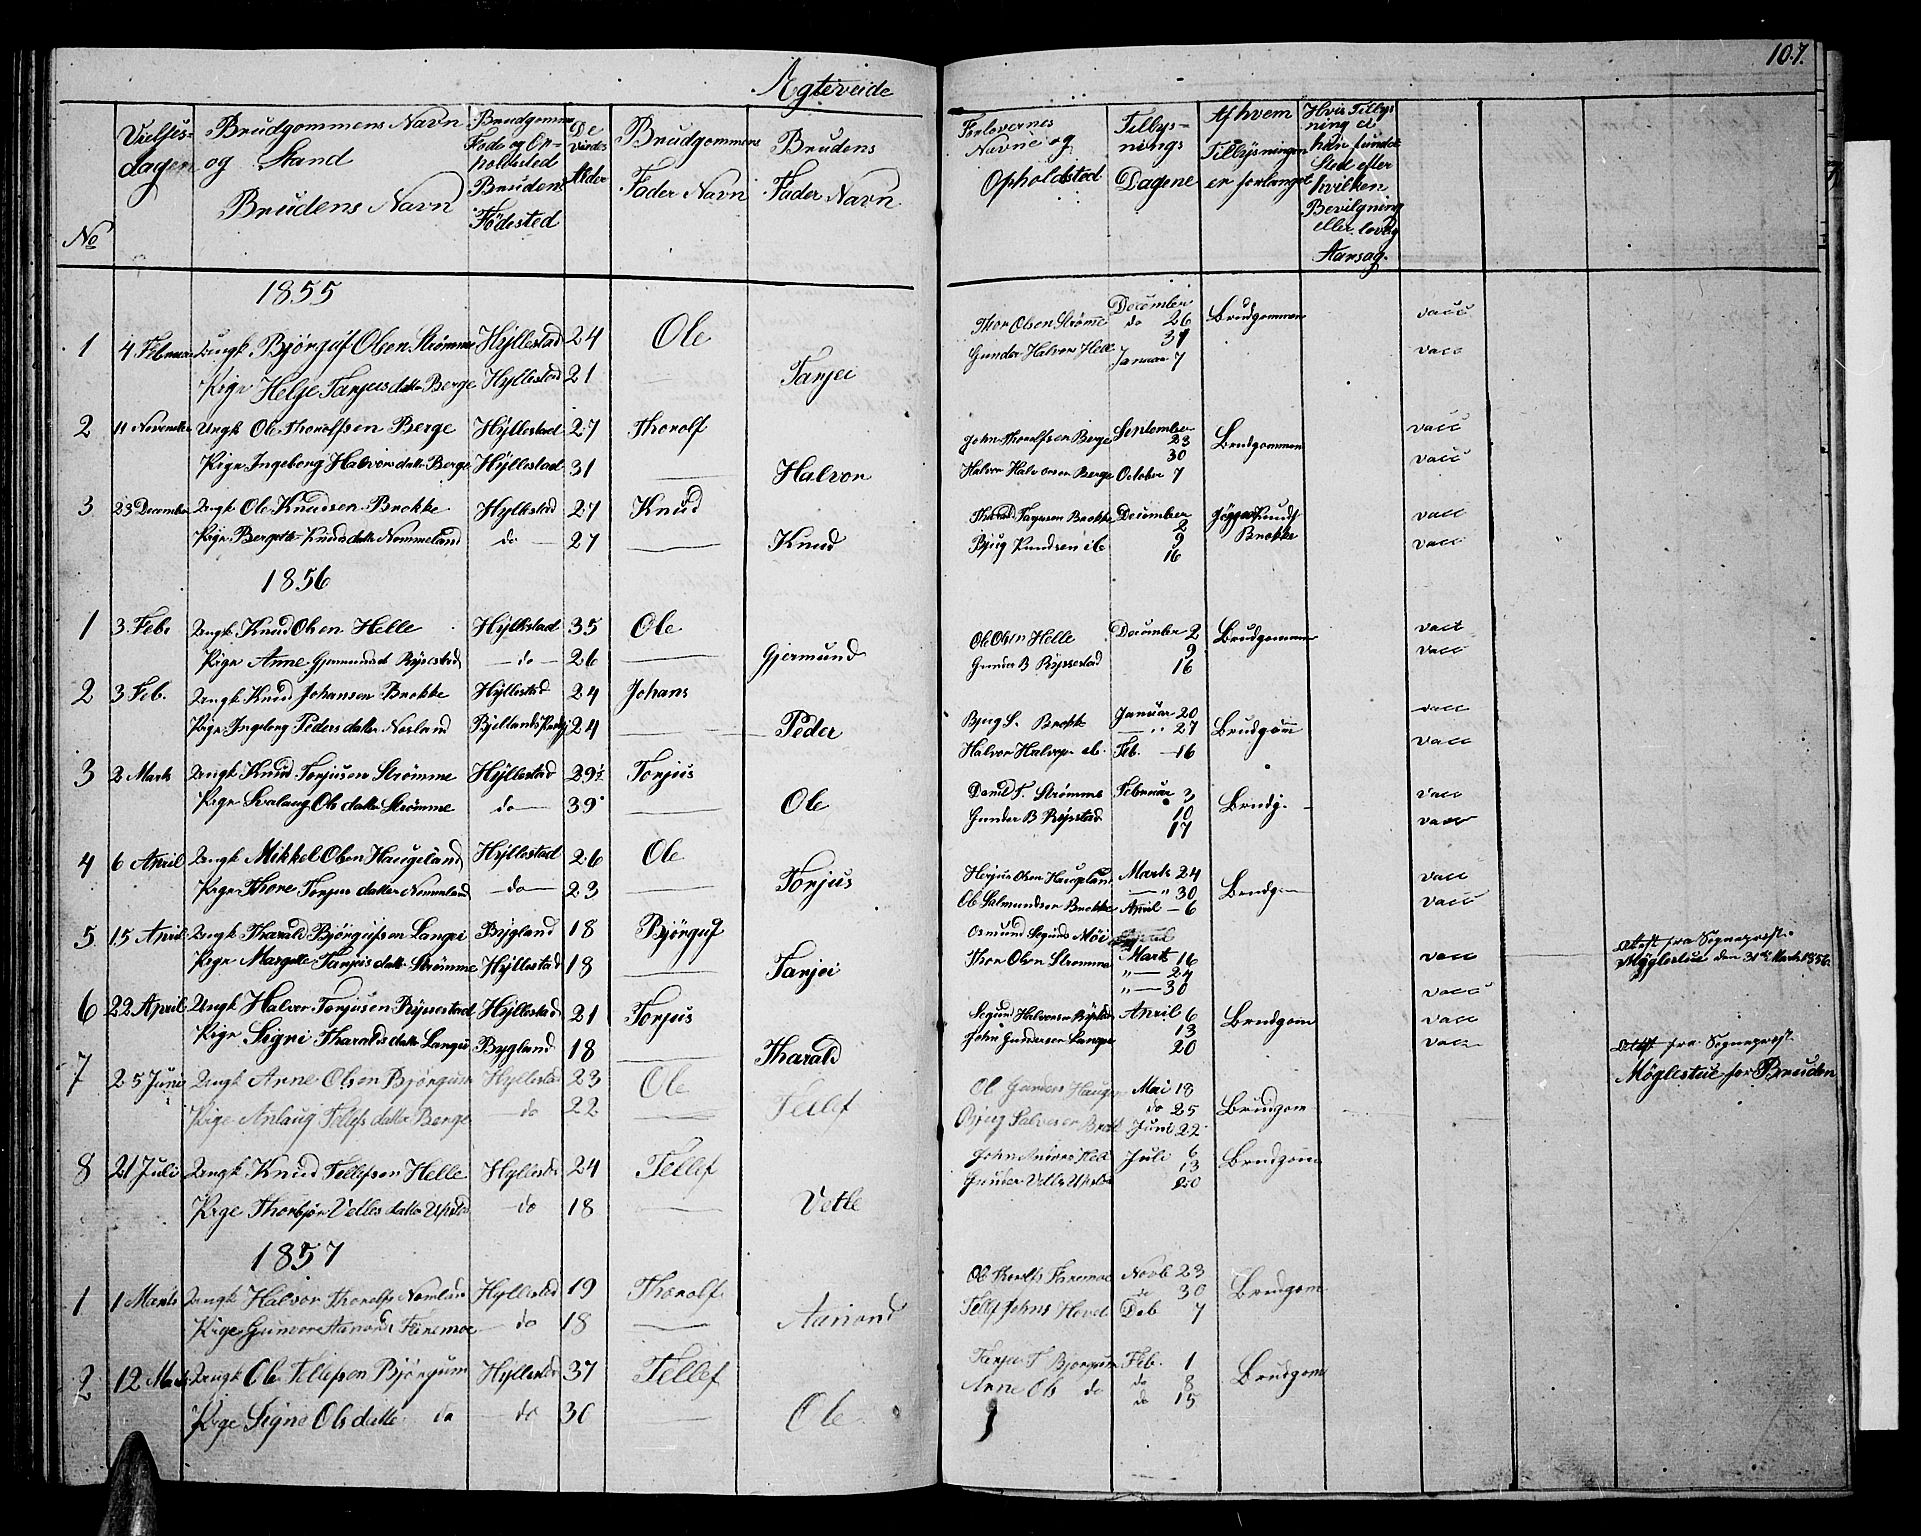 107.
Ægteviede
No
Vielses-
dagen
Brudgommens Navn
og Stand
Brudens Navn
Brudgomm
Føde og Op-
holdssted
Brudens
Födested
De
Viedes
Alder
Brudgommens
Fader Navn
Brudens
Fader Navn
Forlovernes
Navne og
Opholdsted
Tilbys-
nings
Dagene
Af hvem
Tilbysningen
er forlanget
Hvis Tilbys
ning ei
har fundet
Sted efter
hvilken
Bevilgning
eller lovlig
Aarsag.
1855
1 4 Februar Ungk Björguf Olsen Strömme Hyllestad 24 Ole
Pige Helje Tarjeisdatter Berge Hyllestad 21 — Tarjei
Thor Olsen Strømme December do 26 Brudgommen vacc
31
Gunder Halvors Helle Januar 7 vacc
2 11 November Ungk Ole Thorolfsen Berge Hyllestad 27 Thorolf
Pige Ingeborg Halvorsdatter Berge Hyllestad 31 — Halvor
John Thorolfsen Berge September 23 Brudgommen vacc
30
Halvor Halvorsen Berge October 7 vacc
3 23 December Ungk Ole Knudsen Brokke Hyllestad 27 Knud
Pige Bergette Knudsdatter Nommeland do 27 — Knud
Brokke December 2 Knuds vacc
9 Brokke
Bjug Knudsen ib 16 vacc
1856
1 3. Feb. Ungk Knud Olsen Helle Hyllestad 35 Ole
Pige Anne Gjermundsd Rysestad — do — 26 — Gjermund
Ole Olsen Helle December 2 Brudgommen vacc
9 vacc
Gunder B Ryssestad 16
2 3 Feb. Ungk Knud Johansen Brokke Hyllestad 24 Johans
Pige Ingeborg Pedersdatter Bjellands 24 — Peder
Bjug S. Brokke Januar 20 vacc
— " 27 Brudgom
Halvor Halvors. ib. Feb. — 16 vacc
3 2 Marts Ungk Knud Torjusen Strömme Hyllestad 29½ Torjus
Pige Svalaug Olsdatter Strømme do — 39 — Ole
T. Strömme Februar 3 Brudg. — vacc
10
Gunder B Rysestad 17 vacc
4 6 April Ungk Mikkel Olsen Haugeland Hyllestad 26 Ole
Pige Thore Torjusdatter Nommeland — do — 23 — Torjus
Olsen Haugeland Marts 24 vacc
— " 30 Brudg —
Ole Salmundsen Brokke April — 6 vacc
5 15 April Ungk Tharald Björgufsen Langei Bygland 18 Björguf
Pige Margette Tarjeisdatter Strømme Hyllestad 18 — Tarjei
Osmund Sigurds Möi
Thor Olsen Strømme Marts 16 vacc
" — 24
" — 30 vacc
Attest fra Sogneprest
Møglestue den 31te Marts 1856.
6 22 April Ungk Halvor Torjusen Ryssestad Hyllestad 21 Torjus
Pige Signi Tharaldsdatter Langei Bygland 18 — Tharald
Halvorsen April 6 Brudgom vacc
13
John Gundersen Langei 20 vacc
Attest fra Sogneprest
Møglestue for Bruden
7 25 Juni Ungk Arne Olsen Björgum Hyllestad 23 Ole
Pige Anlaug Tellefsdatter Berge do 22 Tellef
Ole Gunders Hauge Mai 18
do 25 Brudgom
Bjug Salvesen Juni 22
8 21 Juli Ungk Knud Tellefsen Helle Hyllestad 24 Tellef
Pige Thorbjör Vetlesdatter do 18 — Vetle
John Helle Juli 6 Brudgom
13
Gunder Vetles 20
1857
1 1 Marts Ungk Halvor Thorolfs Nomland Hyllestad 19 Thorolf
Pige Gunvor Aanonsd Flaremoe do 18 — Aanond
Ole Novb 23
do 30 Brudgom
Tellef Johns Deb 7
2 12 Marts Ungk Ole Tellefsen Björgum Hyllestad 37 Tellef
Pige Signe Olsdatter do — do 30 — Ole
Tarjei T Bjorgum Feb. 1
do 8 Brudgom
Arne Ols do do 15